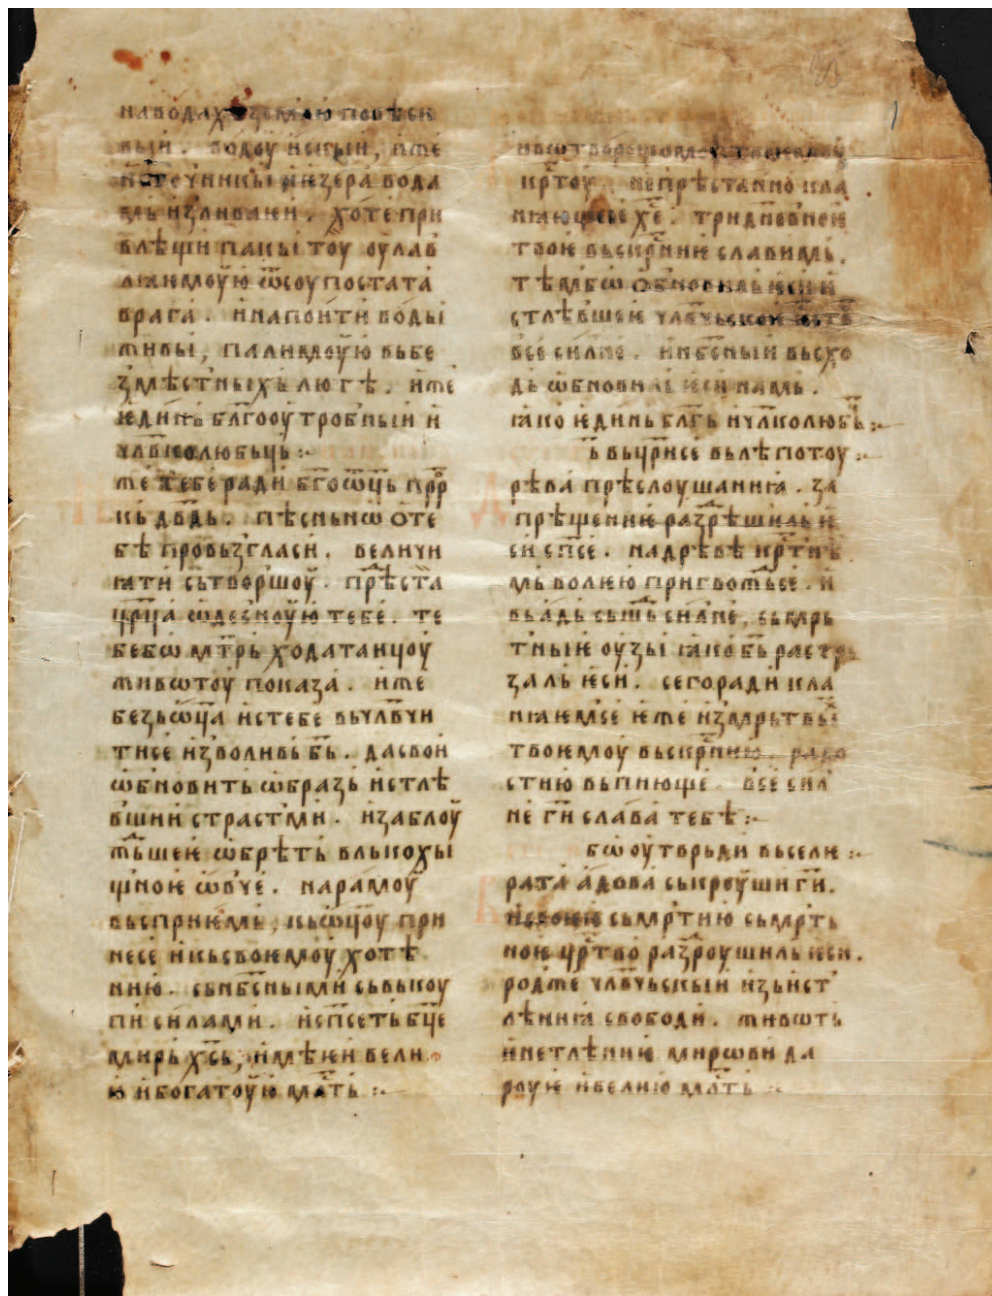 на водахь землю повѣси
выи. водоу испыи, иже
источникы и изера вода
мь изливаѥи. хоте при
влѣщи пакы тоу оулав
лꙗѥмоую ѿсоупостата
врага. и напоити воды
живы, палимоую вьбе
змѣстныхь люгѣ. иже
ѥдинь бл҃гооутробныи и
чл҃вколюбьць:~
же тебе ради бг҃оѡц҃ь прⷪр
кь дв҃дь. пѣсньнѡ оте
бѣ провьзгласи. величи
ꙗти сьтворшоу. прѣⷣста
цр҃ца ѡдесноую тебе. те
бе бѡ мт҃рь ходатаицоу
живѡтоу показа. иже
безь ѡц҃а ис тебе вьчл҃вчи
тисе изволивь б҃ь. да свои
ѡбновить ѡбразь истлѣ
вшии страстми. и заблоу
жⷣьшеѥ ѡбрѣть влькохы
щноѥ ѡвче. на рамоу
вьсприѥмь, кь ѡц҃оу при
несе и кь своѥмоу хотѣ
нию. сь нб҃сными сьвькоу
пи силами. и сп҃сеть бц҃е
мирь хс҃ь, имѣѥи вели
ю и богатоую млⷭть:~
крⷭтоу непрѣстанно кла
нꙗющесе х҃е. триднⷩевноѥ
твоѥ вьскрⷭниѥ славимь.
тѣмь бѡ ѡбновиль ѥси и
стлѣвшеѥ чл҃вчьскоѥ ѥстⷭв
все силне. и нбⷭсныи вьсхо
дь ѡбновиль ѥси намь.
ꙗко ѥдинь блг҃ь и чл҃колюбⷰь:~
ь вьчрⷩисе вь лѣпотоу:~
рѣва прѣслоушаниꙗ. за
прѣщениѥ разⷣрѣшиль ѥ
си сп҃се. на дрѣвѣ крⷭтнѣ
мь волѥю пригвожⷣьсе. и
вь адь сьшⷣь силне, сьмрь
тныѥ оузы ꙗко б҃ь растрь
заль ѥси. сего ради кла
нꙗѥмсе ѥже из мрьтвыⷯ
твоѥмоу вьскрⷭнию. радо
стию вьпиюще. все сил
не г҃и слава тебѣ:~
бѡ оутврьди вьселѥ:~
рата адова ськроуши г҃и.
и своѥю сьмртию сьмрть
ноѥ црⷭтво разⷣроушиль ѥси.
род же чл҃вчьскыи изь ист
лѣниꙗ свободи. живѡть
и нетлѣниѥ мирѡви да
роуѥ и велию млⷭть:~